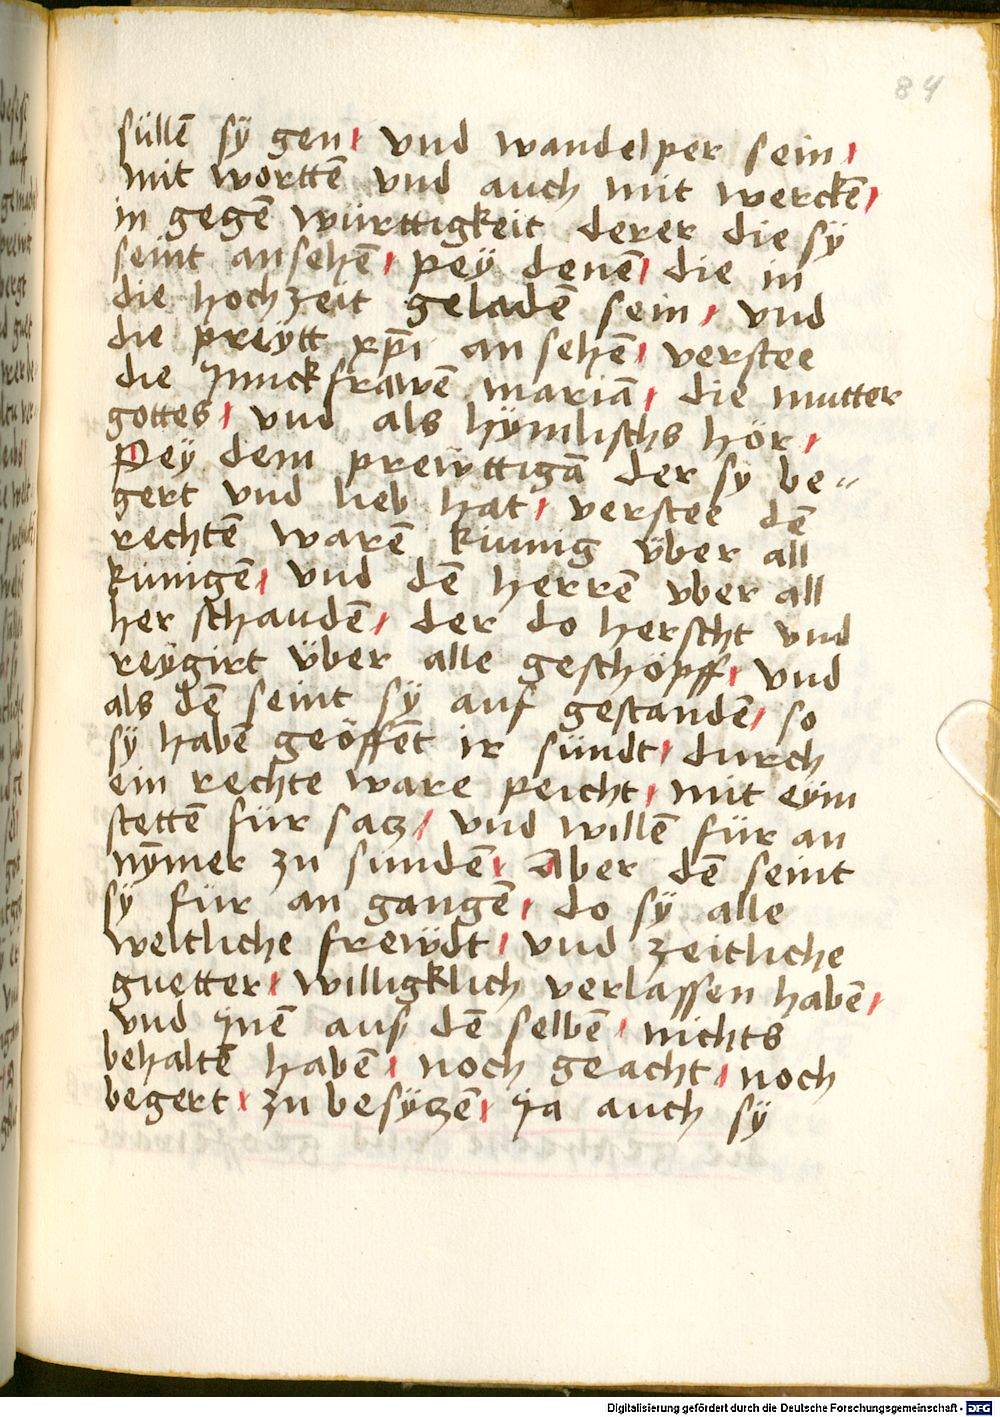 84
süllē sÿ gen / vnd wandelper sein /
mit wortтē vnd auch mit werckē /
in gegē württigkeit derer die sÿ
seint an sehē / peÿ denē / die in
die hochzeit geladē sein / vnd
die preÿtt xp̄i an sehē / verstee
die Junckfrawē mariā / die mutter
gottes / vnd als hÿmlischs hör /
Peÿ dem preẅttigā der sy be=
gert vnd lieb hat / verstee dē
rechtē warē kiunig über all
künigē / vnd dē herrē vber all
her schaudē / der do herscht vnd
reÿgirt über alle geschöpff / vnd
als dē seint sÿ auf gestandē / so
sÿ habē geöffēt ir sündt / durch
ein rechte ware peicht / mit eÿm
stettē für satz / vnd willē für an
nÿmer zu sundē / Aber dē seint
sÿ für an gangē / do sÿ alle
weltliche freẅdt / vnd zeitliche
guetter / willigklich verlassen habē /
vnd Jnē auß dē selbē / nichts
behaltē habē / noch geacht / noch
begert / zu besÿtzē / Ja auch sÿ
Digitalisierung gefördert durch die Deutsche Forschungsgemeinschaft - DFG